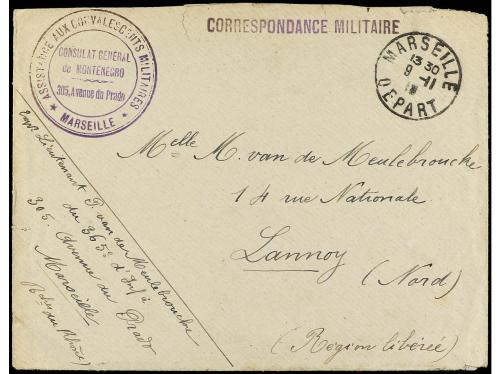 CORRESPONDANCE MILITAIRE
ASSISTANCE AUX CONVALESCENTS MILITAIRES
CONSULAT GÉNÉRAL
de MONTENEGRO
305, Avenue du Prado
★ MARSEILLE ★
MARSEILLE
13 30
9 -11
DEPART
Melle M. van de Meulebrouche
14 rue Nationale
Lannoy
(Nord)
(Région libérée)
Exp. Lieutenant P. van de Meulebrouche
du 365e d'Inf à
305. Avenue du Prado
Marseille
(Bches du Rhône)